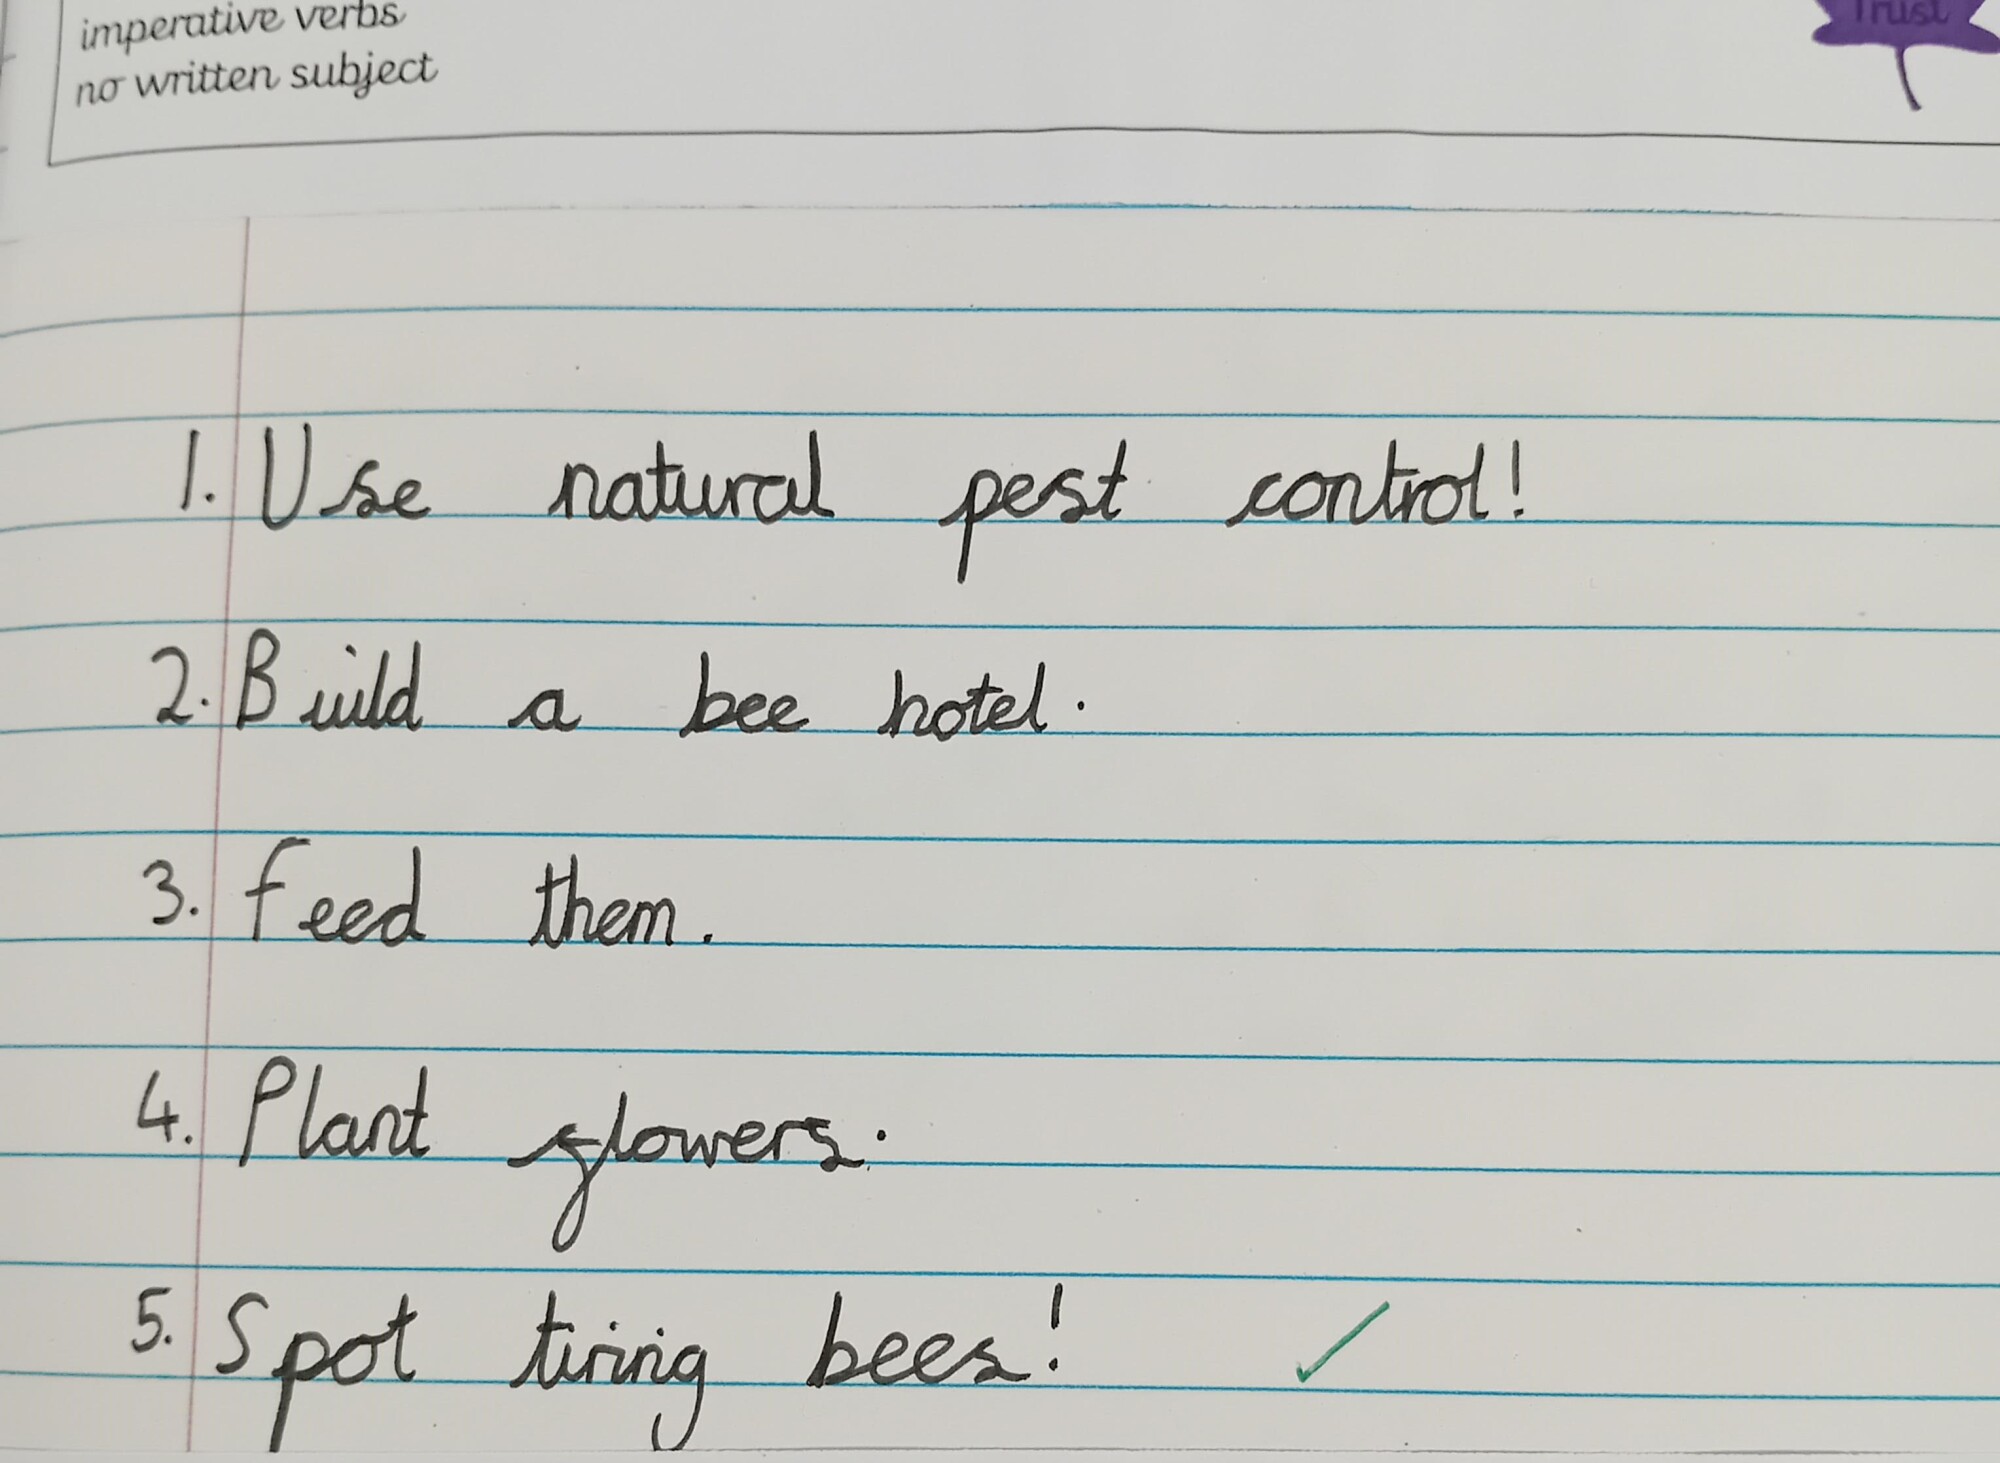 imperative verbs
no written subject
Trust
1. Use natural pest control!
2. Build a bee hotel.
3. Feed them.
4. Plant flowers.
5. Spot tiring bees!